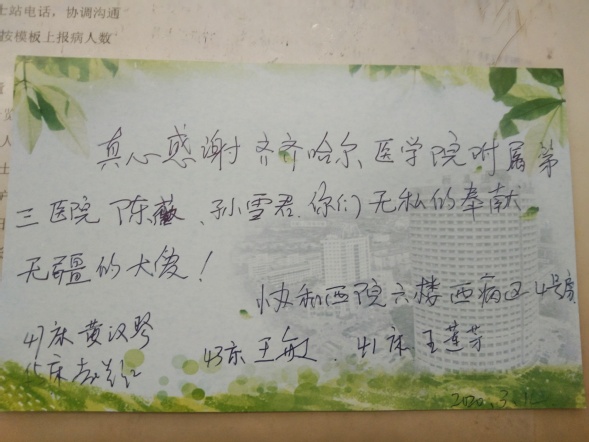 士站电话,协调沟通
按模板上报病人数
真心感谢齐齐哈尔医学院附属第
三医院陈薇、孙雪君.你们无私的奉献
无疆的大爱!
协和西院六楼西病区4号房
47床黄汉琴
43床王敏.41床王莲芳
床
2020.3.